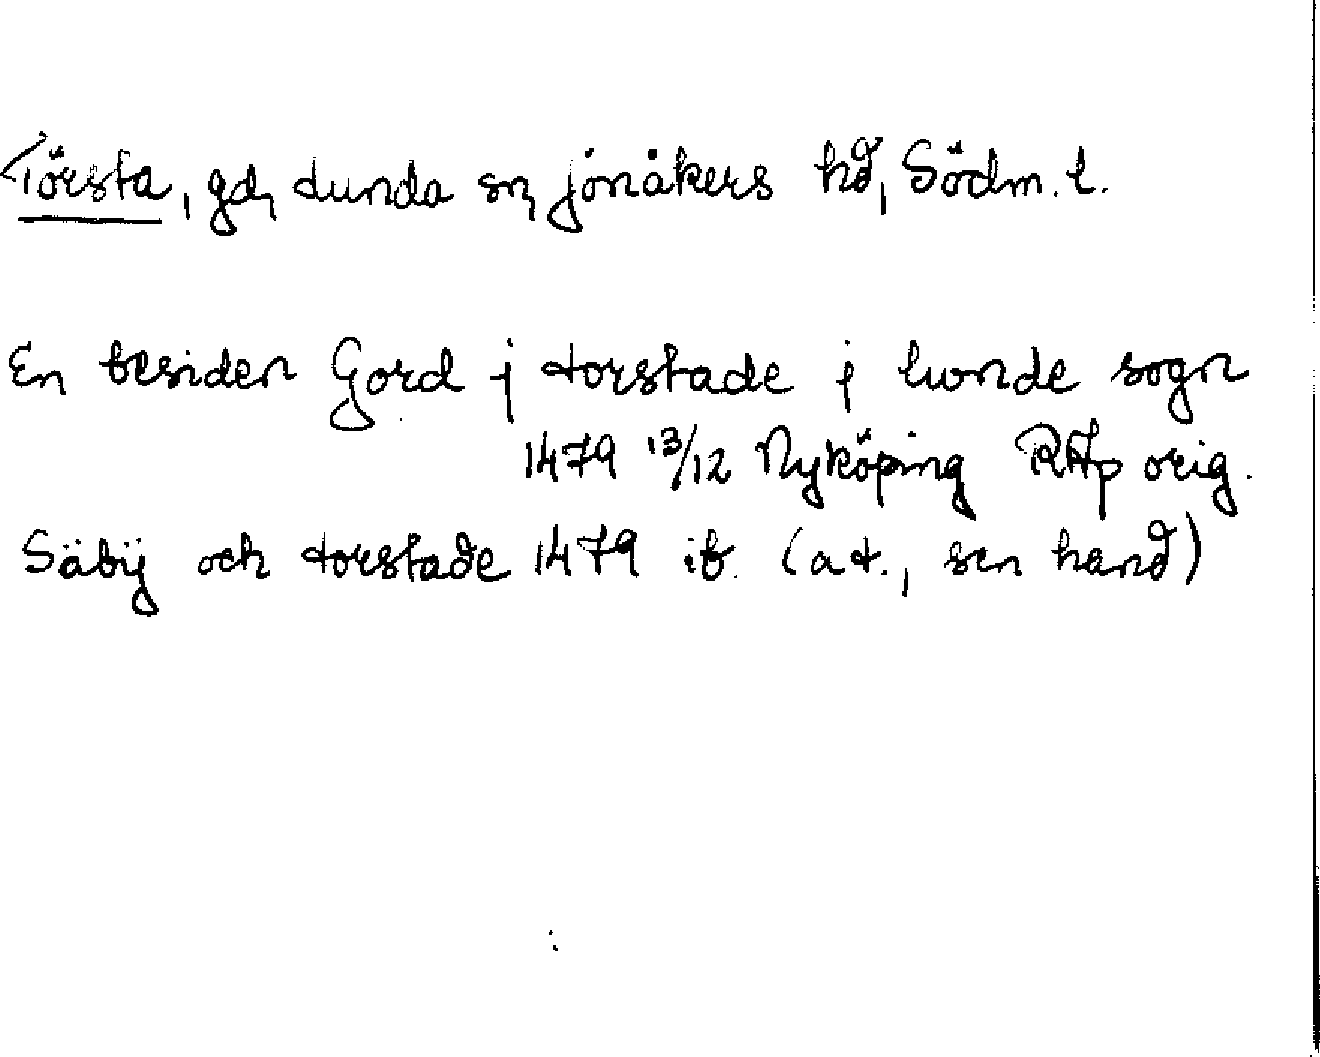 Törsta, gd, Lunda sn, Jönåkers hd, Södm. l.
En besiden Gord j torstade j lunde sogn
1479 13/12 Nyköping RAp orig.
Säbÿ och torstade 1479 ib. (at., sen hand)